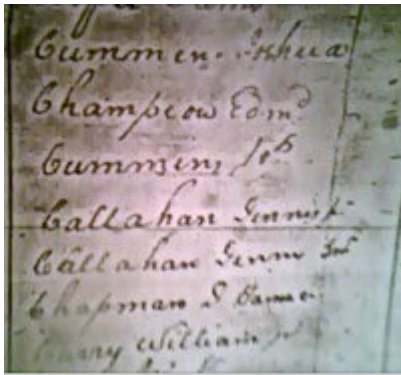 Cummen. Joshua
Champeow Edmd
Cummins Jos
Callahan Dennis
Callahan Dennis Jnr
Chapman
Curry William